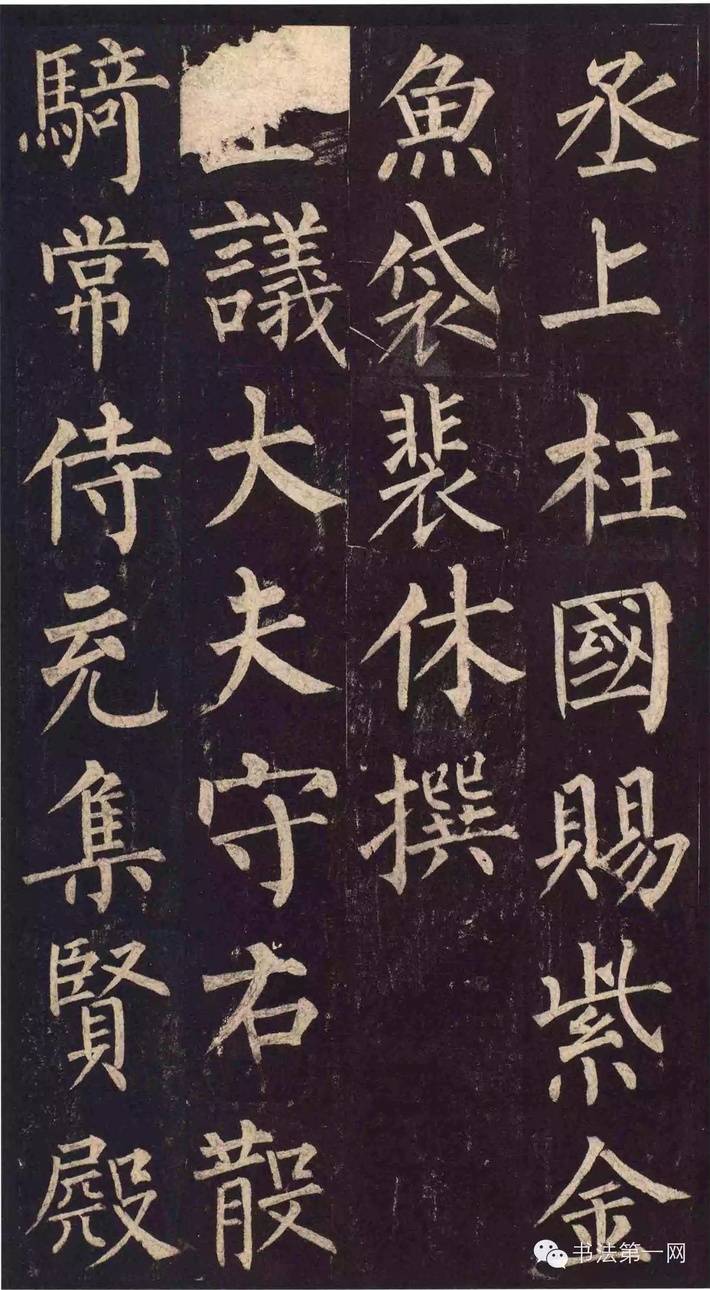 丞上柱國賜紫金
魚袋裴休撰
議大夫守右散
騎常侍充集賢殿
书法第一网